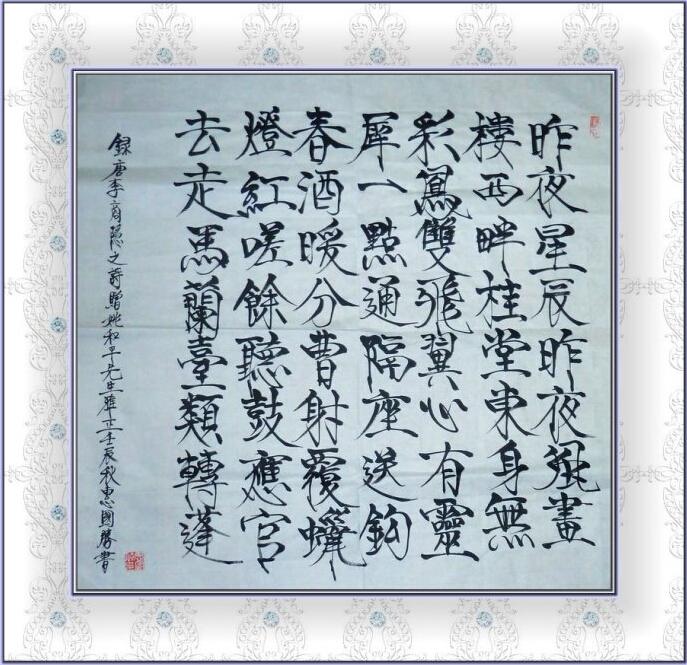 昨夜星辰昨夜風畫
樓西畔桂堂東身無
彩鳳雙飛翼心有靈
犀一點通隔座送鈎
春酒暖分曹射覆蠟
燈紅嗟餘聽鼓應官
去走馬蘭臺類轉蓬
録唐李商隱之詩贈姚和平先生雅正壬辰秋惠國勝書